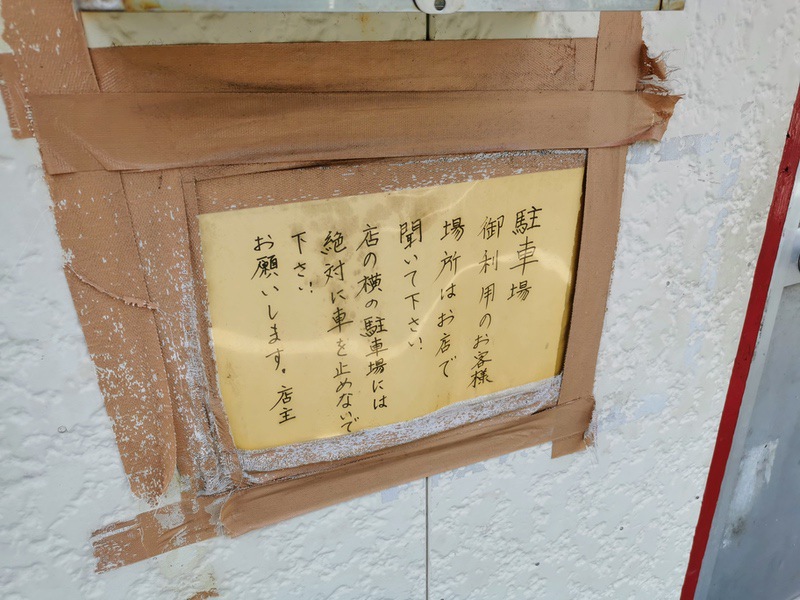 駐車場
御利用のお客様
場所はお店で
聞いて下さい
店の横の駐車場には
絶対に車を止めないで
下さい
お願いします。店主